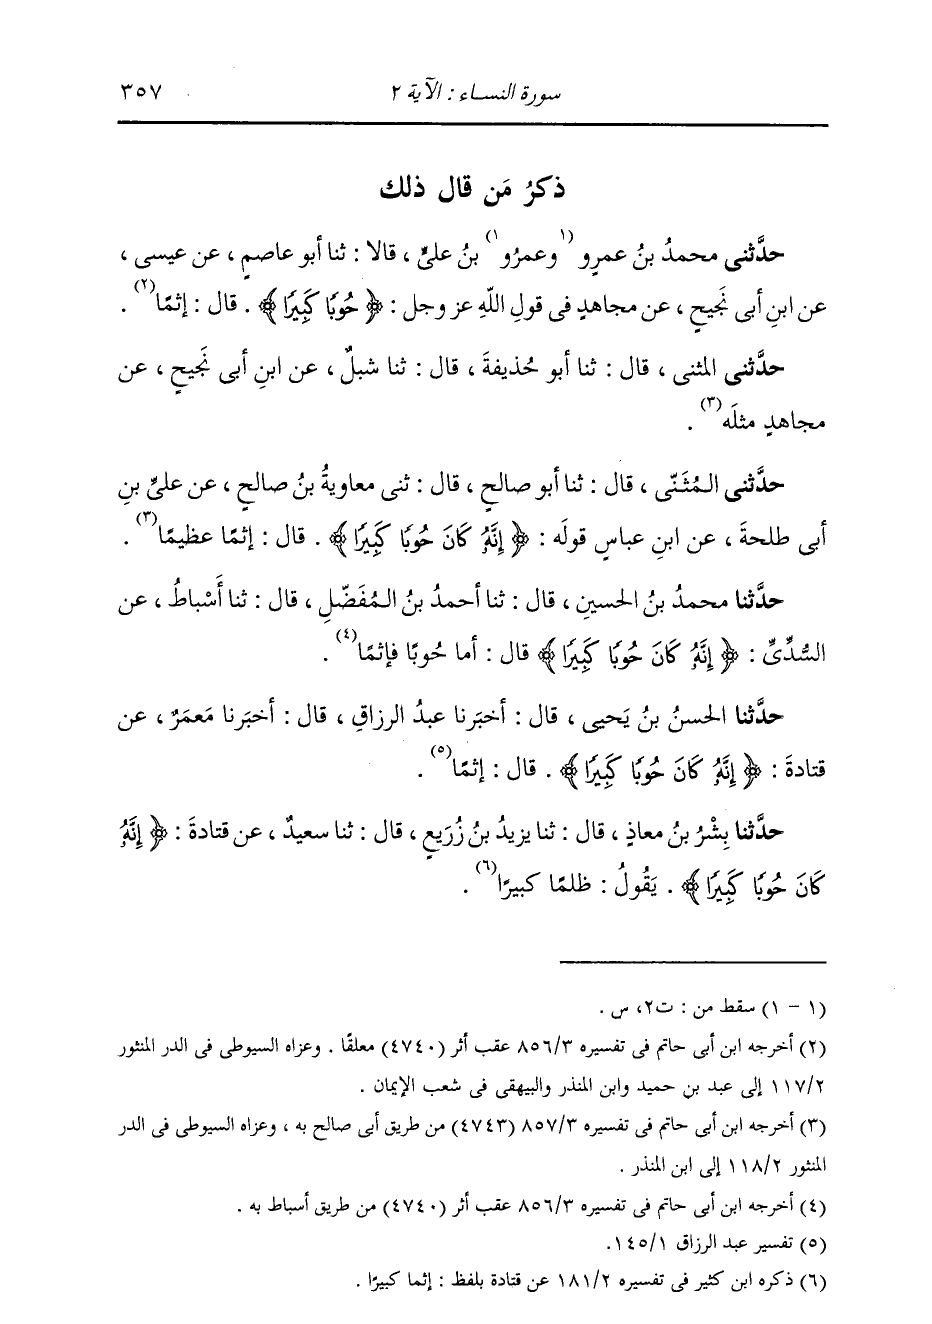 سورة النساء : الآية ٢ ٣٥٧
ذكرُ مَن قال ذلك
حدَّثنى محمدُ بنُ عمرٍو (١وعمرُو١) بنُ علىٍّ ، قالا : ثنا أبو عاصمٍ ، عن عيسى ،
عن ابنِ أبى نَجيحٍ ، عن مجاهدٍ فى قولِ اللَّهِ عز وجل : ﴿ حُوبًا كَبِيرًا ﴾ . قال : إثمًا(٢) .
حدَّثنى المثنى ، قال : ثنا أبو حُذيفةَ ، قال : ثنا شبلٌ ، عن ابنِ أبى نَجيحٍ ، عن
مجاهدٍ مثلَه(٣) .
حدَّثنى المُثَنَّى ، قال : ثنا أبو صالحٍ ، قال : ثنى معاويةُ بنُ صالحٍ ، عن علىِّ بنِ
أبى طلحةَ ، عن ابنِ عباسٍ قولَه : ﴿ إِنَّهُ كَانَ حُوبًا كَبِيرًا ﴾ . قال : إثمًا عظيمًا(٣) .
حدَّثنا محمدُ بنُ الحسينِ ، قال : ثنا أحمدُ بنُ المُفَضَّلِ ، قال : ثنا أَسْباطُ ، عن
السُّدِّىِّ : ﴿ إِنَّهُ كَانَ حُوبًا كَبِيرًا ﴾ قال : أما حُوبًا فإثمًا(٤) .
حدَّثنا الحسنُ بنُ يَحيى ، قال : أخبَرنا عبدُ الرزاقِ ، قال : أخبَرنا مَعمَرٌ ، عن
قتادةَ : ﴿ إِنَّهُ كَانَ حُوبًا كَبِيرًا ﴾ . قال : إثمًا(٥) .
حدَّثنا بِشْرُ بنُ معاذٍ ، قال : ثنا يزيدُ بنُ زُرَيعٍ ، قال : ثنا سعيدٌ ، عن قتادةَ : ﴿ إِنَّهُ
كَانَ حُوبًا كَبِيرًا ﴾ . يَقُولُ : ظلمًا كبيرًا(٦) .
(١ - ١) سقط من : ت٢، س .
(٢) أخرجه ابن أبى حاتم فى تفسيره ٨٥٦/٣ عقب أثر (٤٧٤٠) معلقًا . وعزاه السيوطى فى الدر المنثور
١١٧/٢ إلى عبد بن حميد وابن المنذر والبيهقى فى شعب الإيمان .
(٣) أخرجه ابن أبى حاتم فى تفسيره ٨٥٧/٣ (٤٧٤٣) من طريق أبى صالح به ، وعزاه السيوطى فى الدر
المنثور ١١٨/٢ إلى ابن المنذر .
(٤) أخرجه ابن أبى حاتم فى تفسيره ٨٥٦/٣ عقب أثر (٤٧٤٠) من طريق أسباط به .
(٥) تفسير عبد الرزاق ١٤٥/١.
(٦) ذكره ابن كثير فى تفسيره ١٨١/٢ عن قتادة بلفظ : إثما كبيرًا .